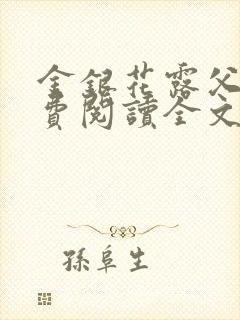 金銀花露父
費閱讀全文
孫阜生